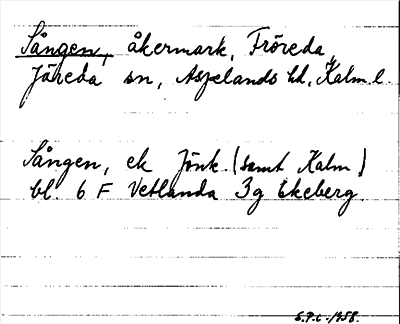 Sången, åkermark, Fröreda,
Järeda sn, Aspelands hd, Kalm. l.
Sången, ek Jönk. (samt Kalm)
bl. 6 F Vetlanda 3g Ekeberg.
S.P.c. 1958.